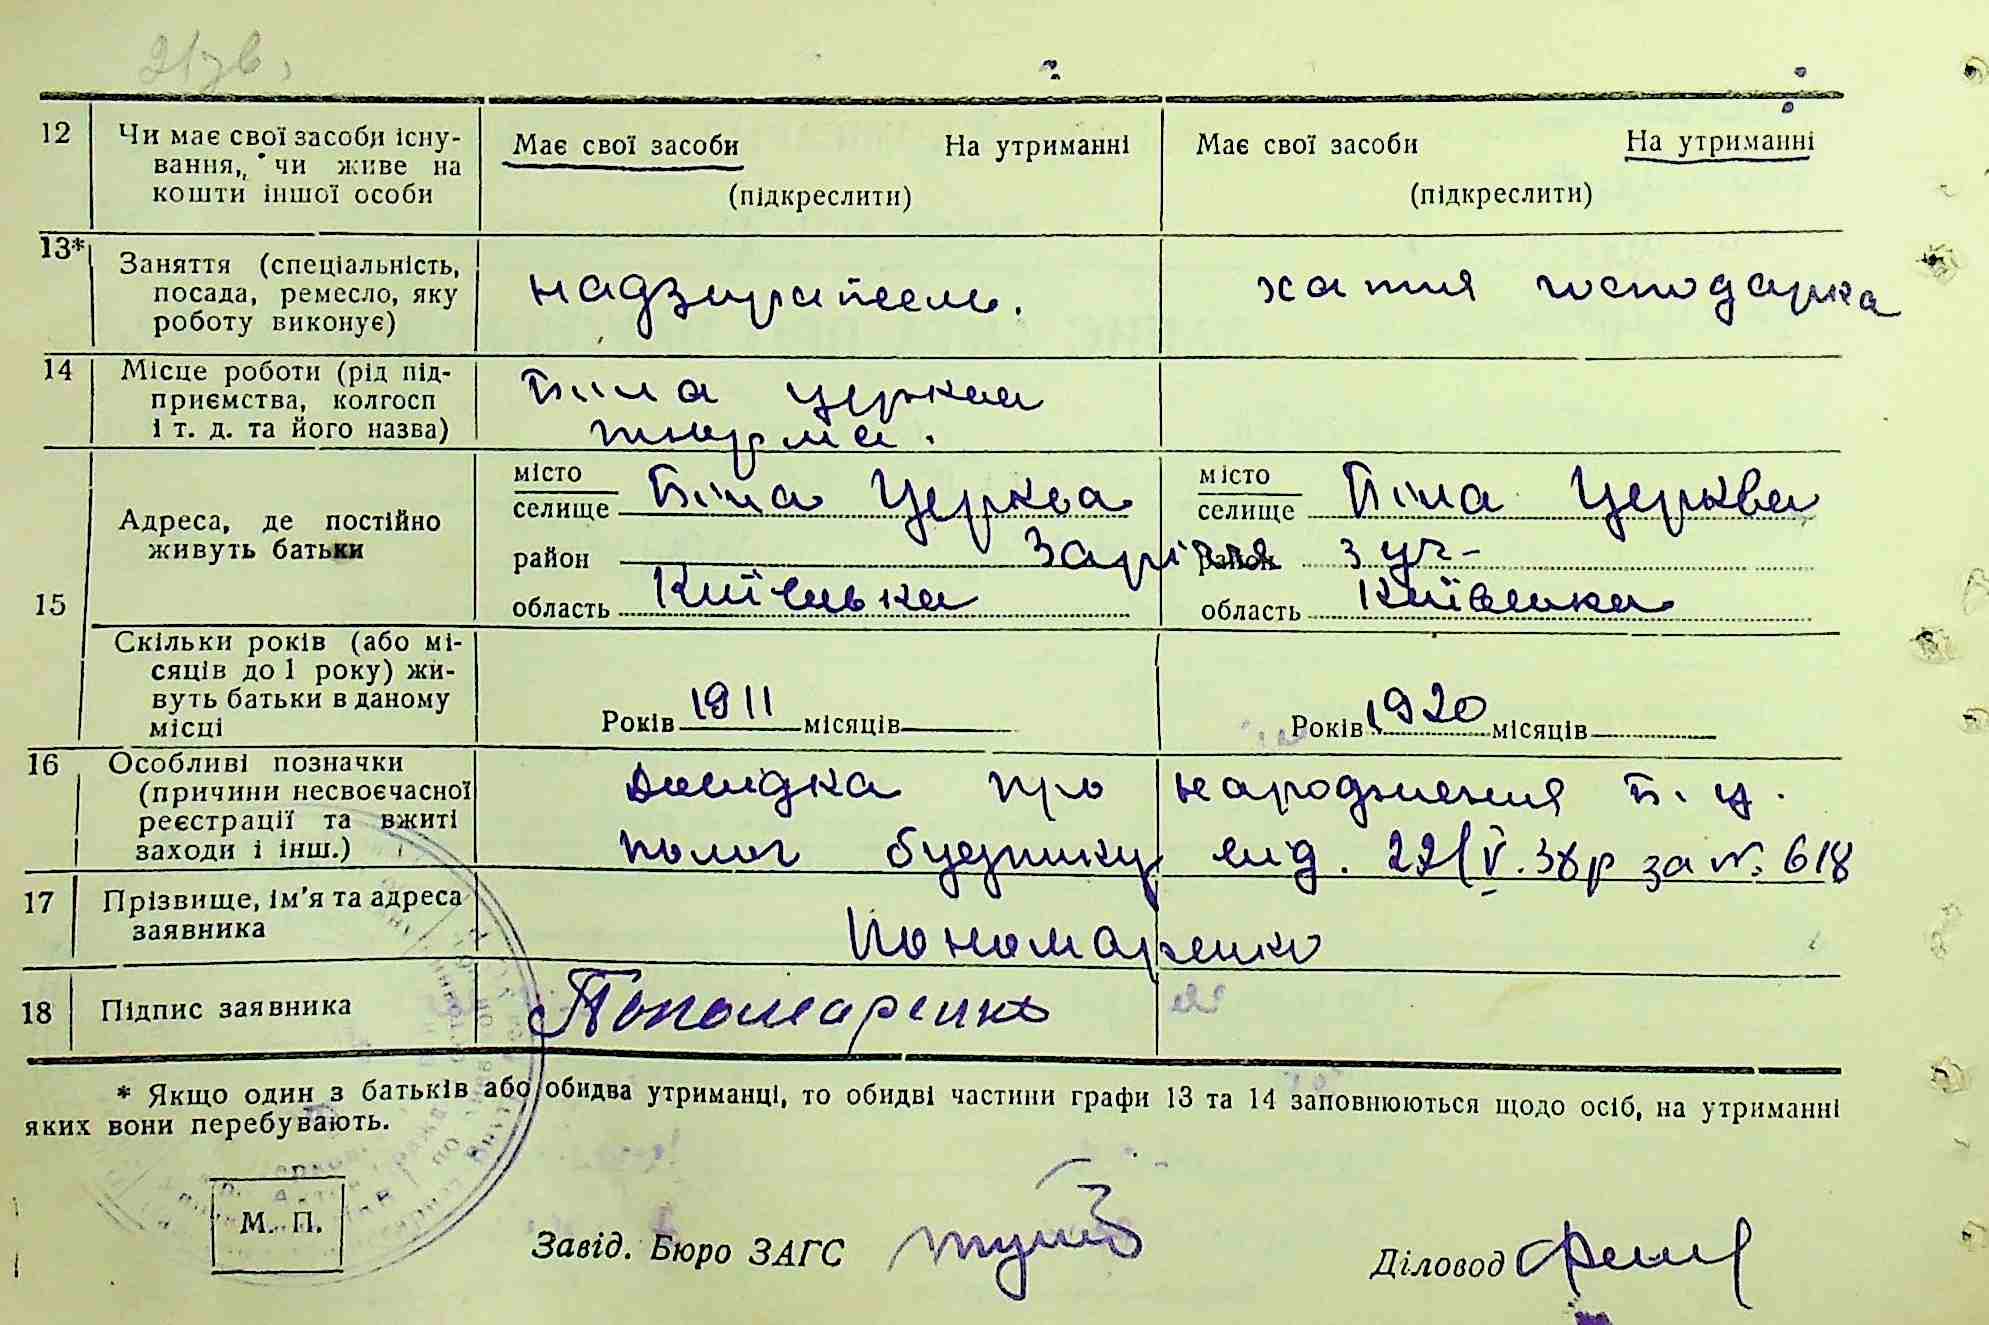 21зв.
12 Чи має свої засоби існу-
вання, чи живе на
кошти іншої особи
Має свої засоби На утриманні
(підкреслити)
Має свої засоби На утриманні
(підкреслити)
13* Заняття (спеціальність,
посада, ремесло, яку
роботу виконує)
надзиратель.
хатня господарка
14 Місце роботи (рід під-
приємства, колгосп
і т. д. та його назва)
Біла церква
тюрма.
15 Адреса, де постійно
живуть батьки
місто
селище Біла Церква
район Заріччя
область Київська
місто
селище Біла Церква
район 3 уч-
область Київська
Скільки років (або мі-
сяців до 1 року) жи-
вуть батьки в даному
місці
Років 1911 місяців
Років 1920 місяців
16 Особливі позначки
(причини несвоєчасної
реєстрації та вжиті
заходи і інш.)
Довідка про народження Б. Ц.
полог будинку від. 22/V.38р за № 618
17 Прізвище, ім'я та адреса
заявника
Пономаренко
18 Підпис заявника
Пономаренко
* Якщо один з батьків або обидва утриманці, то обидві частини графи 13 та 14 заповнюються щодо осіб, на утриманні
яких вони перебувають.
М. П.
Завід. Бюро ЗАГС
Діловод